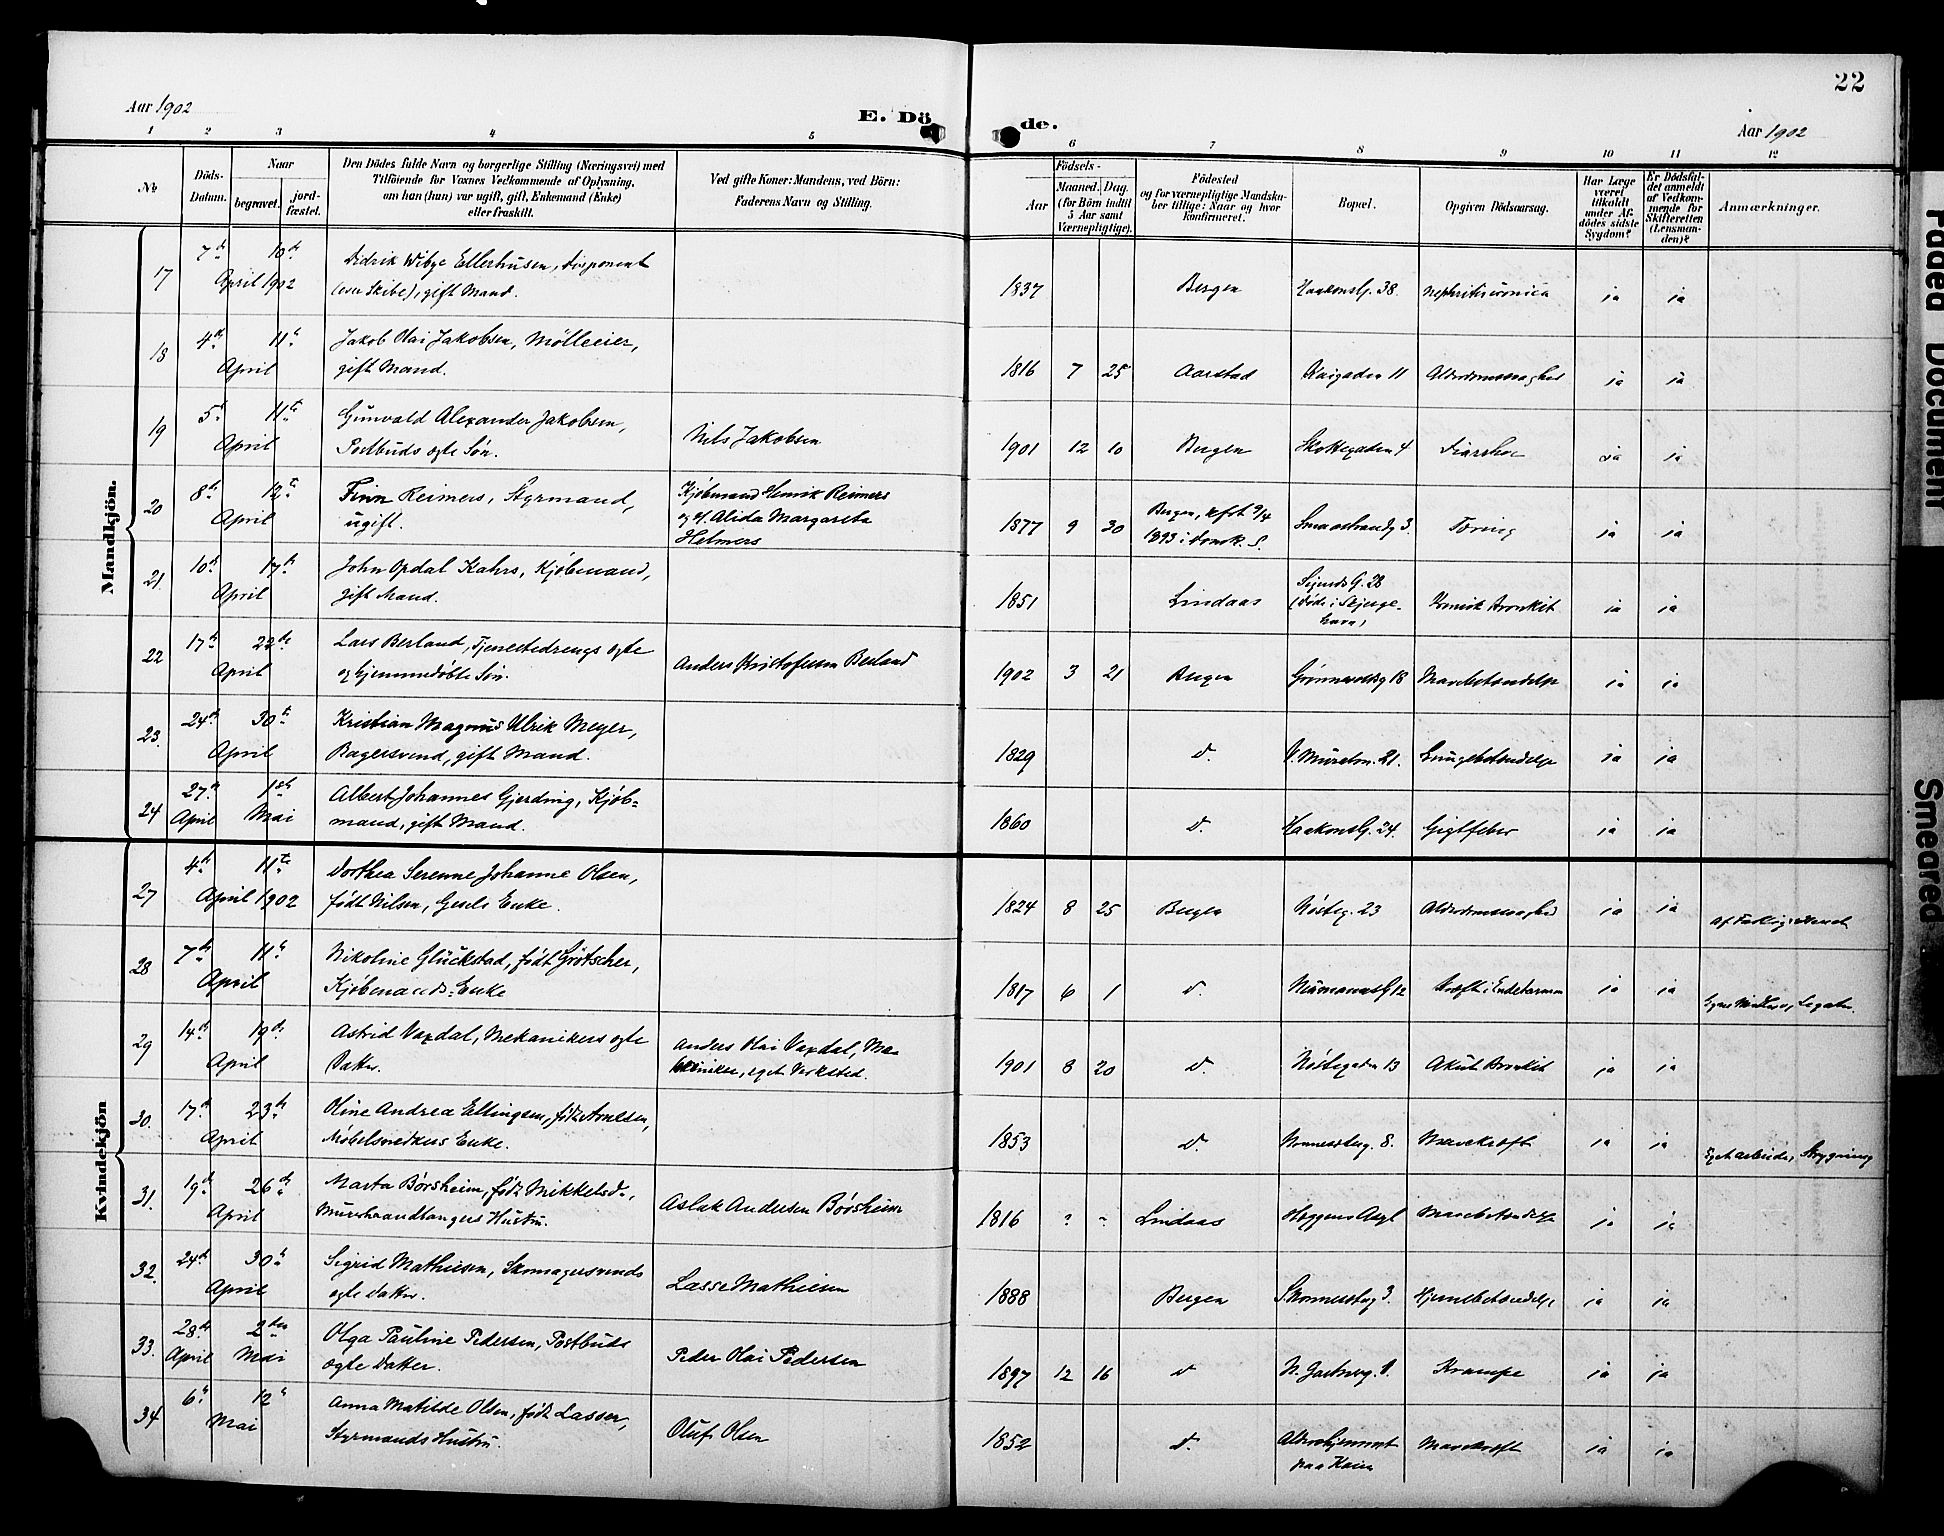 22
Aar 1902
E. Dö
de.
Aar 1902
1 2 3 4 5 6 7 8 9 10 11 12
No
Döds-
Datum.
Naar
begravet.
jord-
fæstet.
Den Dödes fulde Navn og borgerlige Stilling (Næringsvei) med
Tilföiende for Voxnes Vedkommende af Oplysning,
om han (hun) var ugift, gift, Enkemand (Enke)
eller fraskilt.
Ved gifte Koner: Mandens, ved Börn:
Faderens Navn og Stilling.
Födsels-
Aar
Maaned. Dag.
(for Börn indtil
5 Aar samt
Værnepligtige).
Födested
og for værnepligtige Mandska-
ber tillige: Naar og hvor
konfirmeret.
Bopæl.
Opgiven Dödsaarsag.
Har Læge
været
tilkaldt
under Af-
dödes sidste
Sygdom?
Er Dödsfal-
det anmeldt
af Vedkom-
mende for
Skifteretten
(Lensman-
den)?
Anmærkninger.
Mandkjön.
17 7de 10de
April 1902
Didrik Wibye Ellerhusen, Disponent
(over Skibe), gift Mand.
1837 Bergen Haakonsg. 38 ja ja
18 4de 11te
April
Jakob Olai Jakobsen, Mölleeier,
gift Mand.
1816 7 25 Aarstad 11 Alderdomssvaghed ja ja
19 5te 11te
April
Gunvald Alexander Jakobsen,
Postbuds ægte Søn.
Nils Jakobsen
1901 12 10 Bergen Skottegaden 4 Diarrhoe ja ja
20 8de 12te
April
Finn Reimers, Styrmand,
ugift.
Kjøbmand Henrik Reimers
og H. Alida Margareta
Helmers
1877 9 30 Bergen, kfrt 9/4
1893 i Domk. S.
Smaastrandg 3. Tæring ja ja
21. 10de 17de
April
John Opdal Kahrs, Kjøbmand,
gift Mand.
1851 Lindaas
Sigurds G. 28
(Døde i Skjerge-
havn)
Kronisk Bronkit ja ja
22 17de 22de
April
Lars Berland, Tjenestedrengs ægte
og hjemmedøbte Søn.
Anders Kristofersen Berland
1902 3 21 Bergen 18 Mavebetændelse ja ja
23. 24de 30te
April
Kristian Magnus Ulrik Meyer,
Bagersvend, gift Mand.
1829 d. 21. Lungebetændelse ja ja
24 27de 1ste
April Mai
Albert Johannes Gjerding, Kjøb-
mand, gift Mand.
1860 d. Haakonsg. 24. Gigtfeber ja ja
Kvindekjön
27 4de 11te
April 1902
Dorthea Serenne Johanne Olsen,
født Nilsen, Enke.
1824 8 25 Bergen Nøsteg. 23 Alderdomssvaghed ja ja
28 7de 11te
April
Nikoline Glückstad, født Grötscher,
Kjøbmands Enke
1817 6 1 d. Neumannsg 12 Kræft i Endetarmen ja ja
29 14de 19de
April
Astrid Vaxdal, Mekanikers ægte
Datter.
Anders Olai Vaxdal, Me-
kaniker, eget Verksted.
1901 8 20 d. Nøstegaden 13 Akut Bronkit ja ja
30. 17de 23de
April
Oline Andrea Ellingsen, født Arnesen,
Møbelsnedkers Enke.
1853 d. 8. Mavekræft ja ja
Eget arbeide, Strygning
31. 19de 26de
April
Marta Børsheim, født Mikkelsd.,
Murerhaandlangers Hustru.
Aslak Andersen Børsheim
1816 ? ? Lindaas Mavebetændelse ja ja
32. 24de 30te
April
Sigrid Mathiesen, Skomagersvends
ægte Datter.
Lasse Mathiesen
1888 Bergen 3. Hjernebetændelse ja ja
33. 28de 2den
April Mai
Olga Pauline Pedersen, Postbuds
ægte Datter.
Peder Olai Pedersen
1897 12 16 d Krampe ja ja
34 6te 12te
Mai
Anna Matilde Olsen, født Lassen,
Styrmands Hustru.
Oluf Olsen
1852 d. Aldershjemmet
Mavekræft ja ja
Faded Document
Smeared